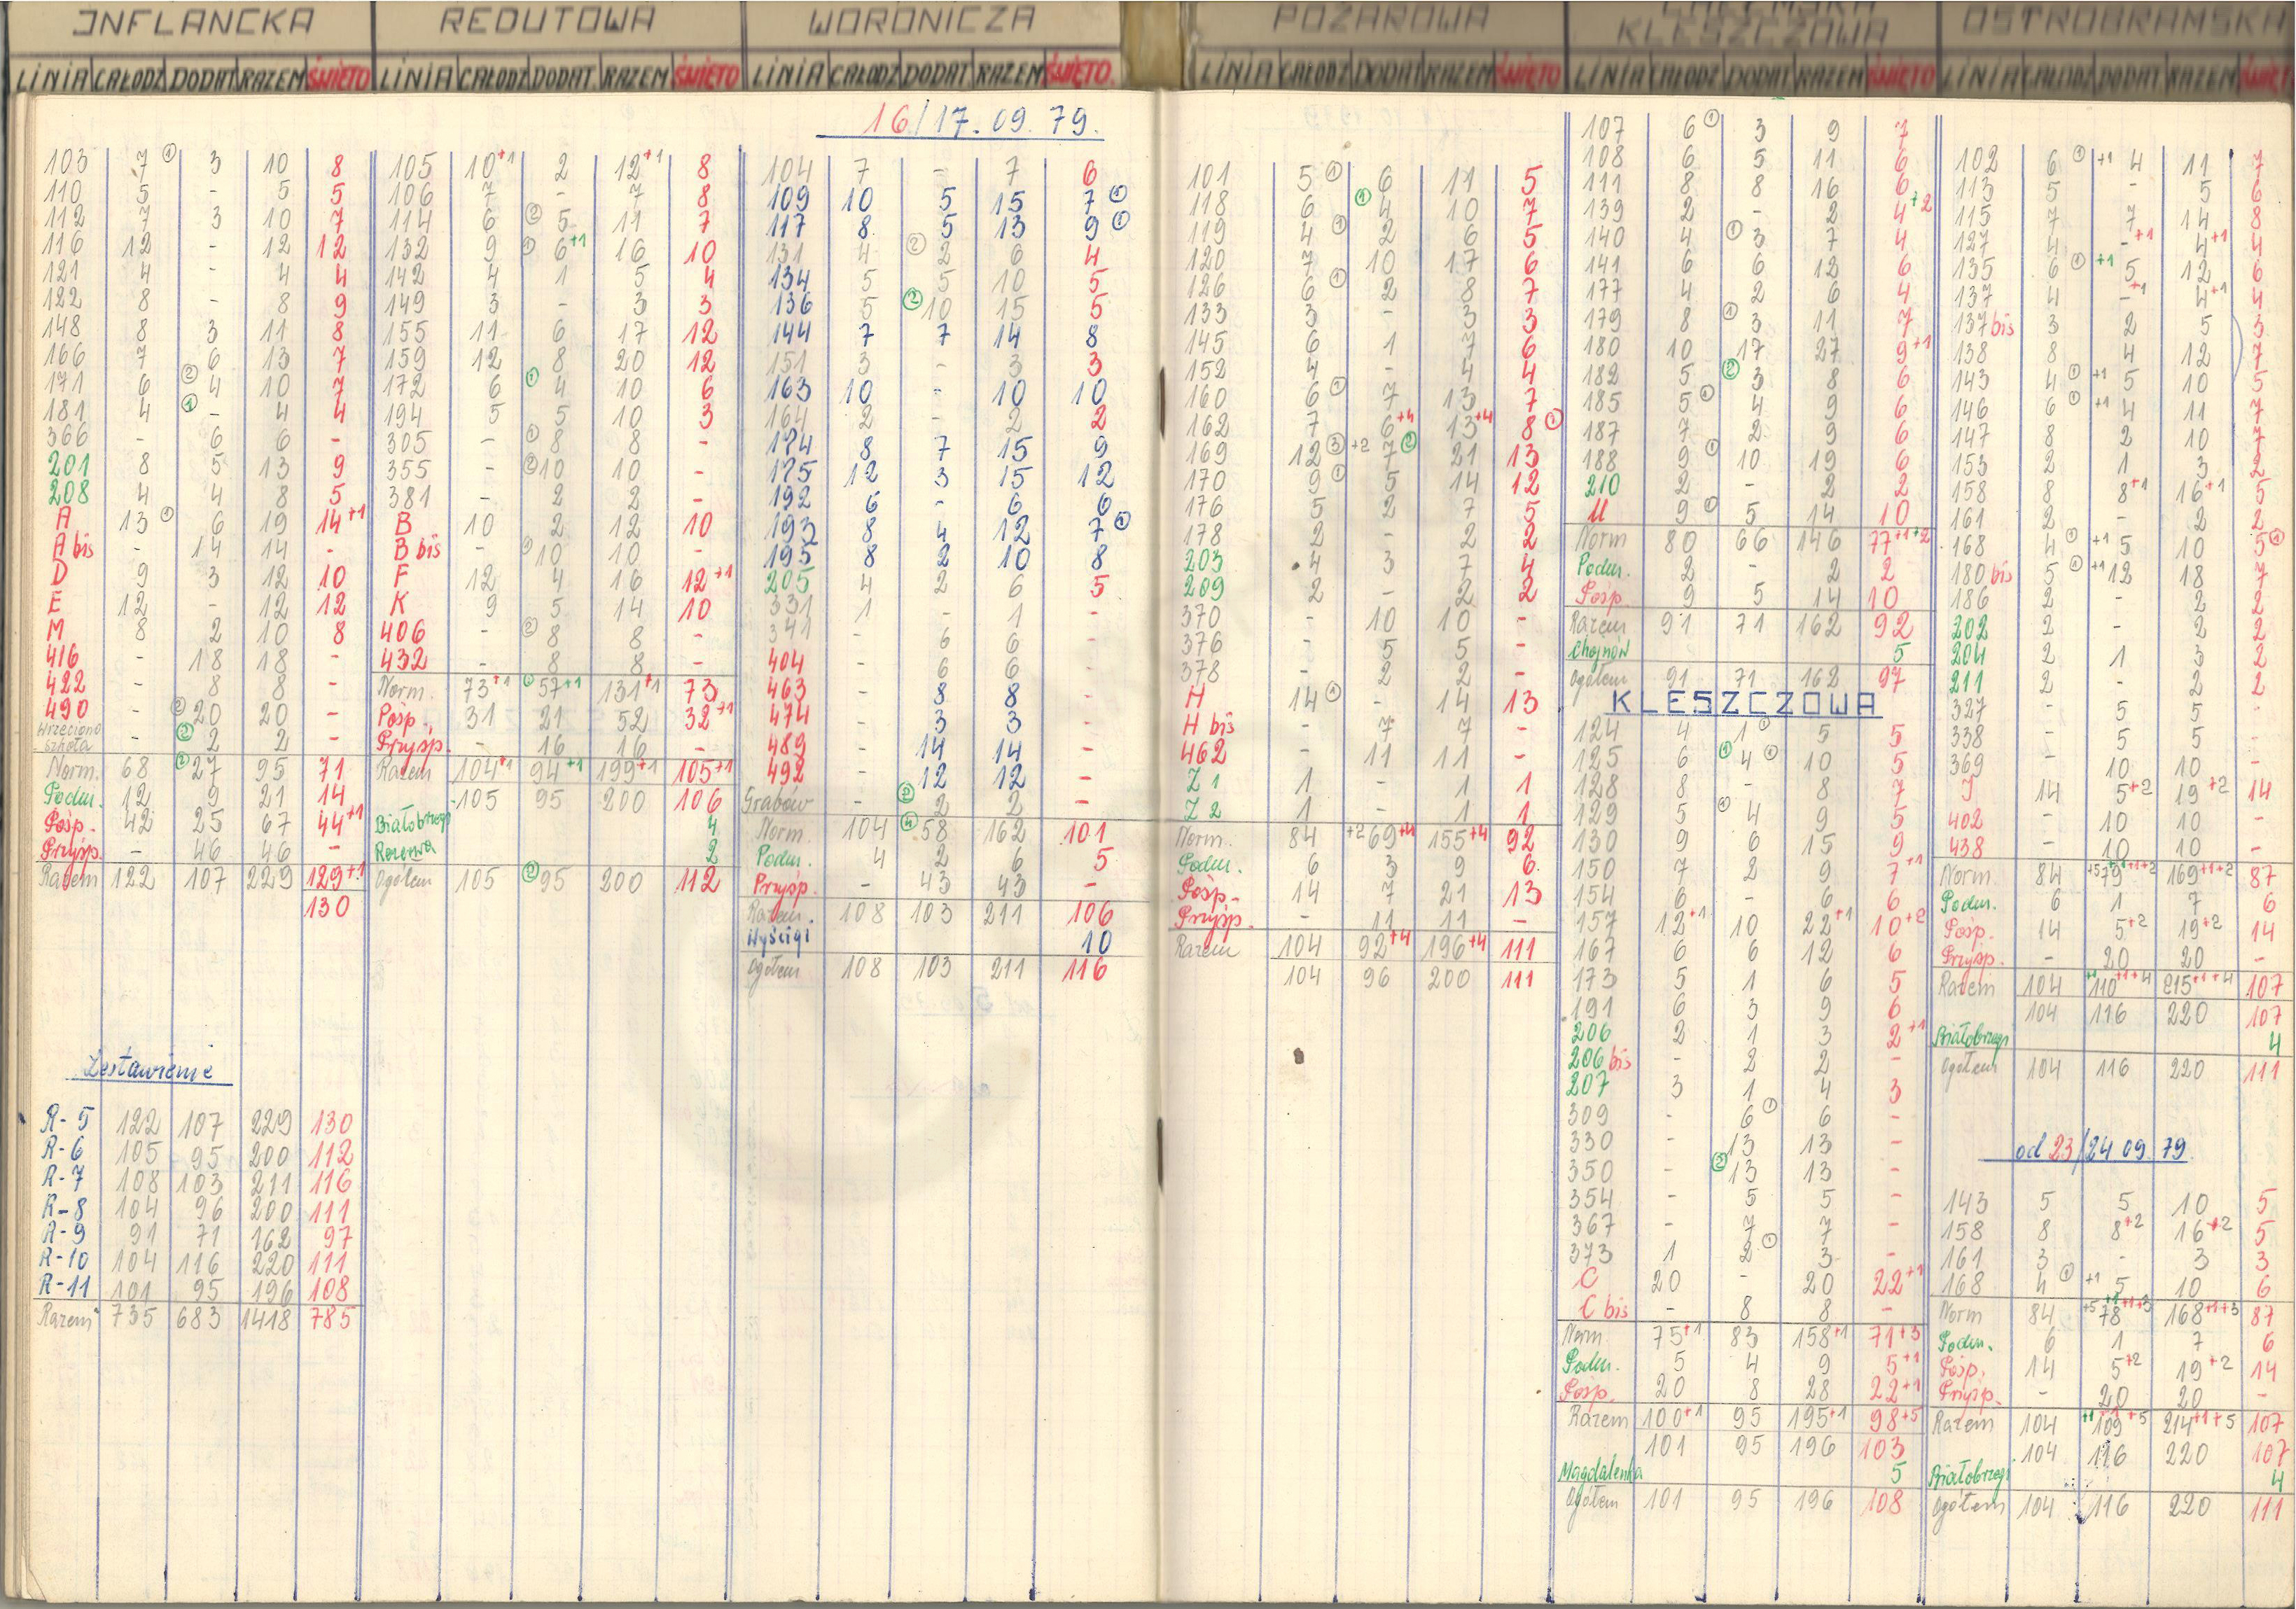 INFLANCKA
LINIA CAŁODZ DODAT RAZEM ŚWIĘTO
103 7 ① 3 10 8
110 5 - 5 5
112 7 3 10 7
116 12 - 12 12
121 4 - 4 4
122 8 - 8 9
148 8 3 11 8
166 7 6 13 7
171 6 ② 4 10 7
181 4 ① - 4 4
366 - 6 6 -
201 8 5 13 9
208 4 4 8 5
A 13 ① 6 19 14+1
A bis - 14 14 -
D 9 3 12 10
E 12 - 12 12
M 8 2 10 8
416 - 18 18 -
422 - 8 8 -
490 - ② 20 20 -
Wrzeciono szkoła - ② 2 2 -
Norm. 68 ② 27 95 71
Podm. 12 9 21 14
Posp. 42 25 67 44+1
Przysp. - 46 46 -
Razem 122 107 229 129+1
130
Zestawienie
R-5 122 107 229 130
R-6 105 95 200 112
R-7 108 103 211 116
R-8 104 96 200 111
R-9 91 71 162 97
R-10 104 116 220 111
R-11 101 95 196 108
Razem 735 683 1418 785
REDUTOWA
LINIA CAŁODZ DODAT. RAZEM ŚWIĘTO
105 10+1 2 12+1 8
106 7 - 7 8
114 6 ② 5 11 7
132 9 ① 6+1 16 10
142 4 1 5 4
149 3 - 3 3
155 11 6 17 12
159 12 8 20 12
172 6 ① 4 10 6
194 5 5 10 3
305 - ① 8 8 -
355 - ② 10 10 -
381 - 2 2 -
B 10 2 12 10
B bis - 10 10 -
F 12 4 16 12+1
K 9 5 14 10
406 - ② 8 8 -
432 - 8 8 -
Norm. 73+1 57+1 131+1 73
Posp. 31 21 52 32+1
Przysp. - 16 16 -
Razem 104+1 94+1 199+1 105+1
105 95 200 106
Białobrzegi 4
Rezerwa 2
Ogółem 105 ② 95 200 112
WORONICZA
LINIA CAŁODZ DODAT RAZEM ŚWIĘTO.
16/17.09.79.
104 7 - 7 6
109 10 5 15 7 ①
117 8 5 13 9 ①
131 4 ② 2 6 4
134 5 5 10 5
136 5 ② 10 15 5
144 7 7 14 8
151 3 - 3 3
163 10 - 10 10
164 2 - 2 2
174 8 7 15 9
175 12 3 15 12
192 6 - 6 6
193 8 4 12 7 ①
195 8 2 10 8
205 4 2 6 5
331 1 - 1 -
341 - 6 6 -
404 - 6 6 -
463 - 8 8 -
474 - 3 3 -
489 - 14 14 -
492 - 12 12 -
Grabów - ② 2 2 -
Norm. 104 ④ 58 162 101
Podm. 4 2 6 5
Przysp. - 43 43 -
Razem. 108 103 211 106
Wyścigi 10
Ogółem 108 103 211 116
POŻAROWA
LINIA CAŁODZ DODAT RAZEM ŚWIĘTO
101 5 ① 6 11 5
118 6 ① 4 10 7
119 4 ① 2 6 5
120 7 10 17 6
126 6 ① 2 8 7
133 3 - 3 3
145 6 1 7 6
152 4 - 4 4
160 6 ① 7 13 7
162 7 6+4 13+4 8 ①
169 12 ③ +2 7 ② 21 13
170 9 ① 5 14 12
176 5 2 7 5
178 2 - 2 2
203 4 3 7 4
209 2 - 2 2
370 - 10 10 -
376 - 5 5 -
378 - 2 2 -
H 14 ① - 14 13
H bis - 7 7 -
462 - 11 11 -
Z 1 1 - 1 1
Z 2 1 - 1 1
Norm. 84 +2 69+4 155+4 92
Podm. 6 3 9 6
Posp. 14 7 21 13
Przysp - 11 11 -
Razem 104 92+4 196+4 111
104 96 200 111
KLESZCZOWA
LINIA CAŁODZ DODAT RAZEM ŚWIĘTO
107 6 ① 3 9 7
108 6 5 11 6
111 8 8 16 6
139 2 - 2 4+2
140 4 ① 3 7 4
141 6 6 12 6
177 4 2 6 4
179 8 ① 3 11 7
180 10 17 27 9+1
182 5 ② 3 8 6
185 5 ① 4 9 6
187 7 2 9 6
188 9 ① 10 19 6
210 2 - 2 2
U 9 ① 5 14 10
Norm 80 66 146 77+1+2
Podm. 2 - 2 2
Posp. 9 5 14 10
Razem 91 71 162 92
Chojnów 5
Ogółem 91 71 162 97
KLESZCZOWA
124 4 1 ① 5 5
125 6 ① 4 ① 10 5
128 8 - 8 7
129 5 ① 4 9 5
130 9 6 15 9
150 7 2 9 7+1
154 6 - 6 6
157 12+1 10 22+1 10+2
167 6 6 12 6
173 5 1 6 5
191 6 3 9 6
206 2 1 3 2+1
206 bis - 2 2 -
207 3 1 4 3
309 - 6 ① 6 -
330 - 13 13 -
350 - ② 13 13 -
354 - 5 5 -
367 - 7 7 -
373 1 2 ① 3 -
C 20 - 20 22+1
C bis - 8 8 -
Norm. 75+1 83 158+1 71+3
Podm. 5 4 9 5+1
Posp. 20 8 28 22+1
Razem 100+1 95 195+1 98+5
101 95 196 103
Magdalenka 5
Ogółem 101 95 196 108
OSTROBRAMSKA
LINIA CAŁODZ DODAT RAZEM ŚWIĘTO
102 6 ① +1 4 11 7
113 5 - 5 6
115 7 7 14 8
127 4 -+1 4+1 4
135 6 ① +1 5 12 6
137 4 -+1 4+1 4
137 bis 3 2 5 3
138 8 4 12 7
143 4 ① +1 5 10 5
146 6 ① +1 4 11 7
147 8 2 10 7
153 2 1 3 2
158 8 8+1 16+1 5
161 2 - 2 2
168 4 ① +1 5 10 5 ①
180 bis 5 ① +1 12 18 7
186 2 - 2 2
202 2 - 2 2
204 2 1 3 2
211 2 - 2 2
327 - 5 5 -
338 - 5 5 -
369 - 10 10 -
J 14 5+2 19+2 14
402 - 10 10 -
438 - 10 10 -
Norm. 84 +5 79+1+2 169+1+2 87
Podm. 6 1 7 6
Posp. 14 5+2 19+2 14
Przysp. - 20 20 -
Razem 104 110+1+4 215+1+4 107
104 116 220 107
Białobrzegi 4
Ogółem 104 116 220 111
od 23/24 09.79.
143 5 5 10 5
158 8 8+2 16+2 5
161 3 - 3 3
168 4 ① +1 5 10 6
Norm 84 +5 78+1+3 168+1+3 87
Podm. 6 1 7 6
Posp. 14 5+2 19+2 14
Przysp. - 20 20 -
Razem 104 +1 109+5 214+1+5 107
104 116 220 107
Białobrzegi 4
Ogółem 104 116 220 111